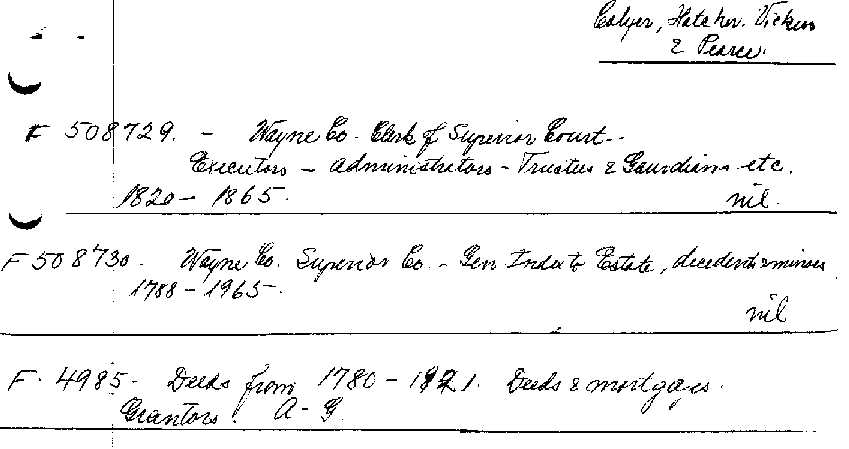 Colyer, Hatcher. Vickers
& Pearce.
F 508729. - Wayne Co. Clerk of Superior Court -
Executors - Administrators - Trustees & Gaurdians etc.
1820 - 1865. nil.
F 508730. Wayne Co. Superior Co. - Gen Index to Estate, decedents & minors
1788 - 1965. nil
F. 4985 - Deeds from 1780 - 1921. Deeds & mortgages.
Grantors. A - G